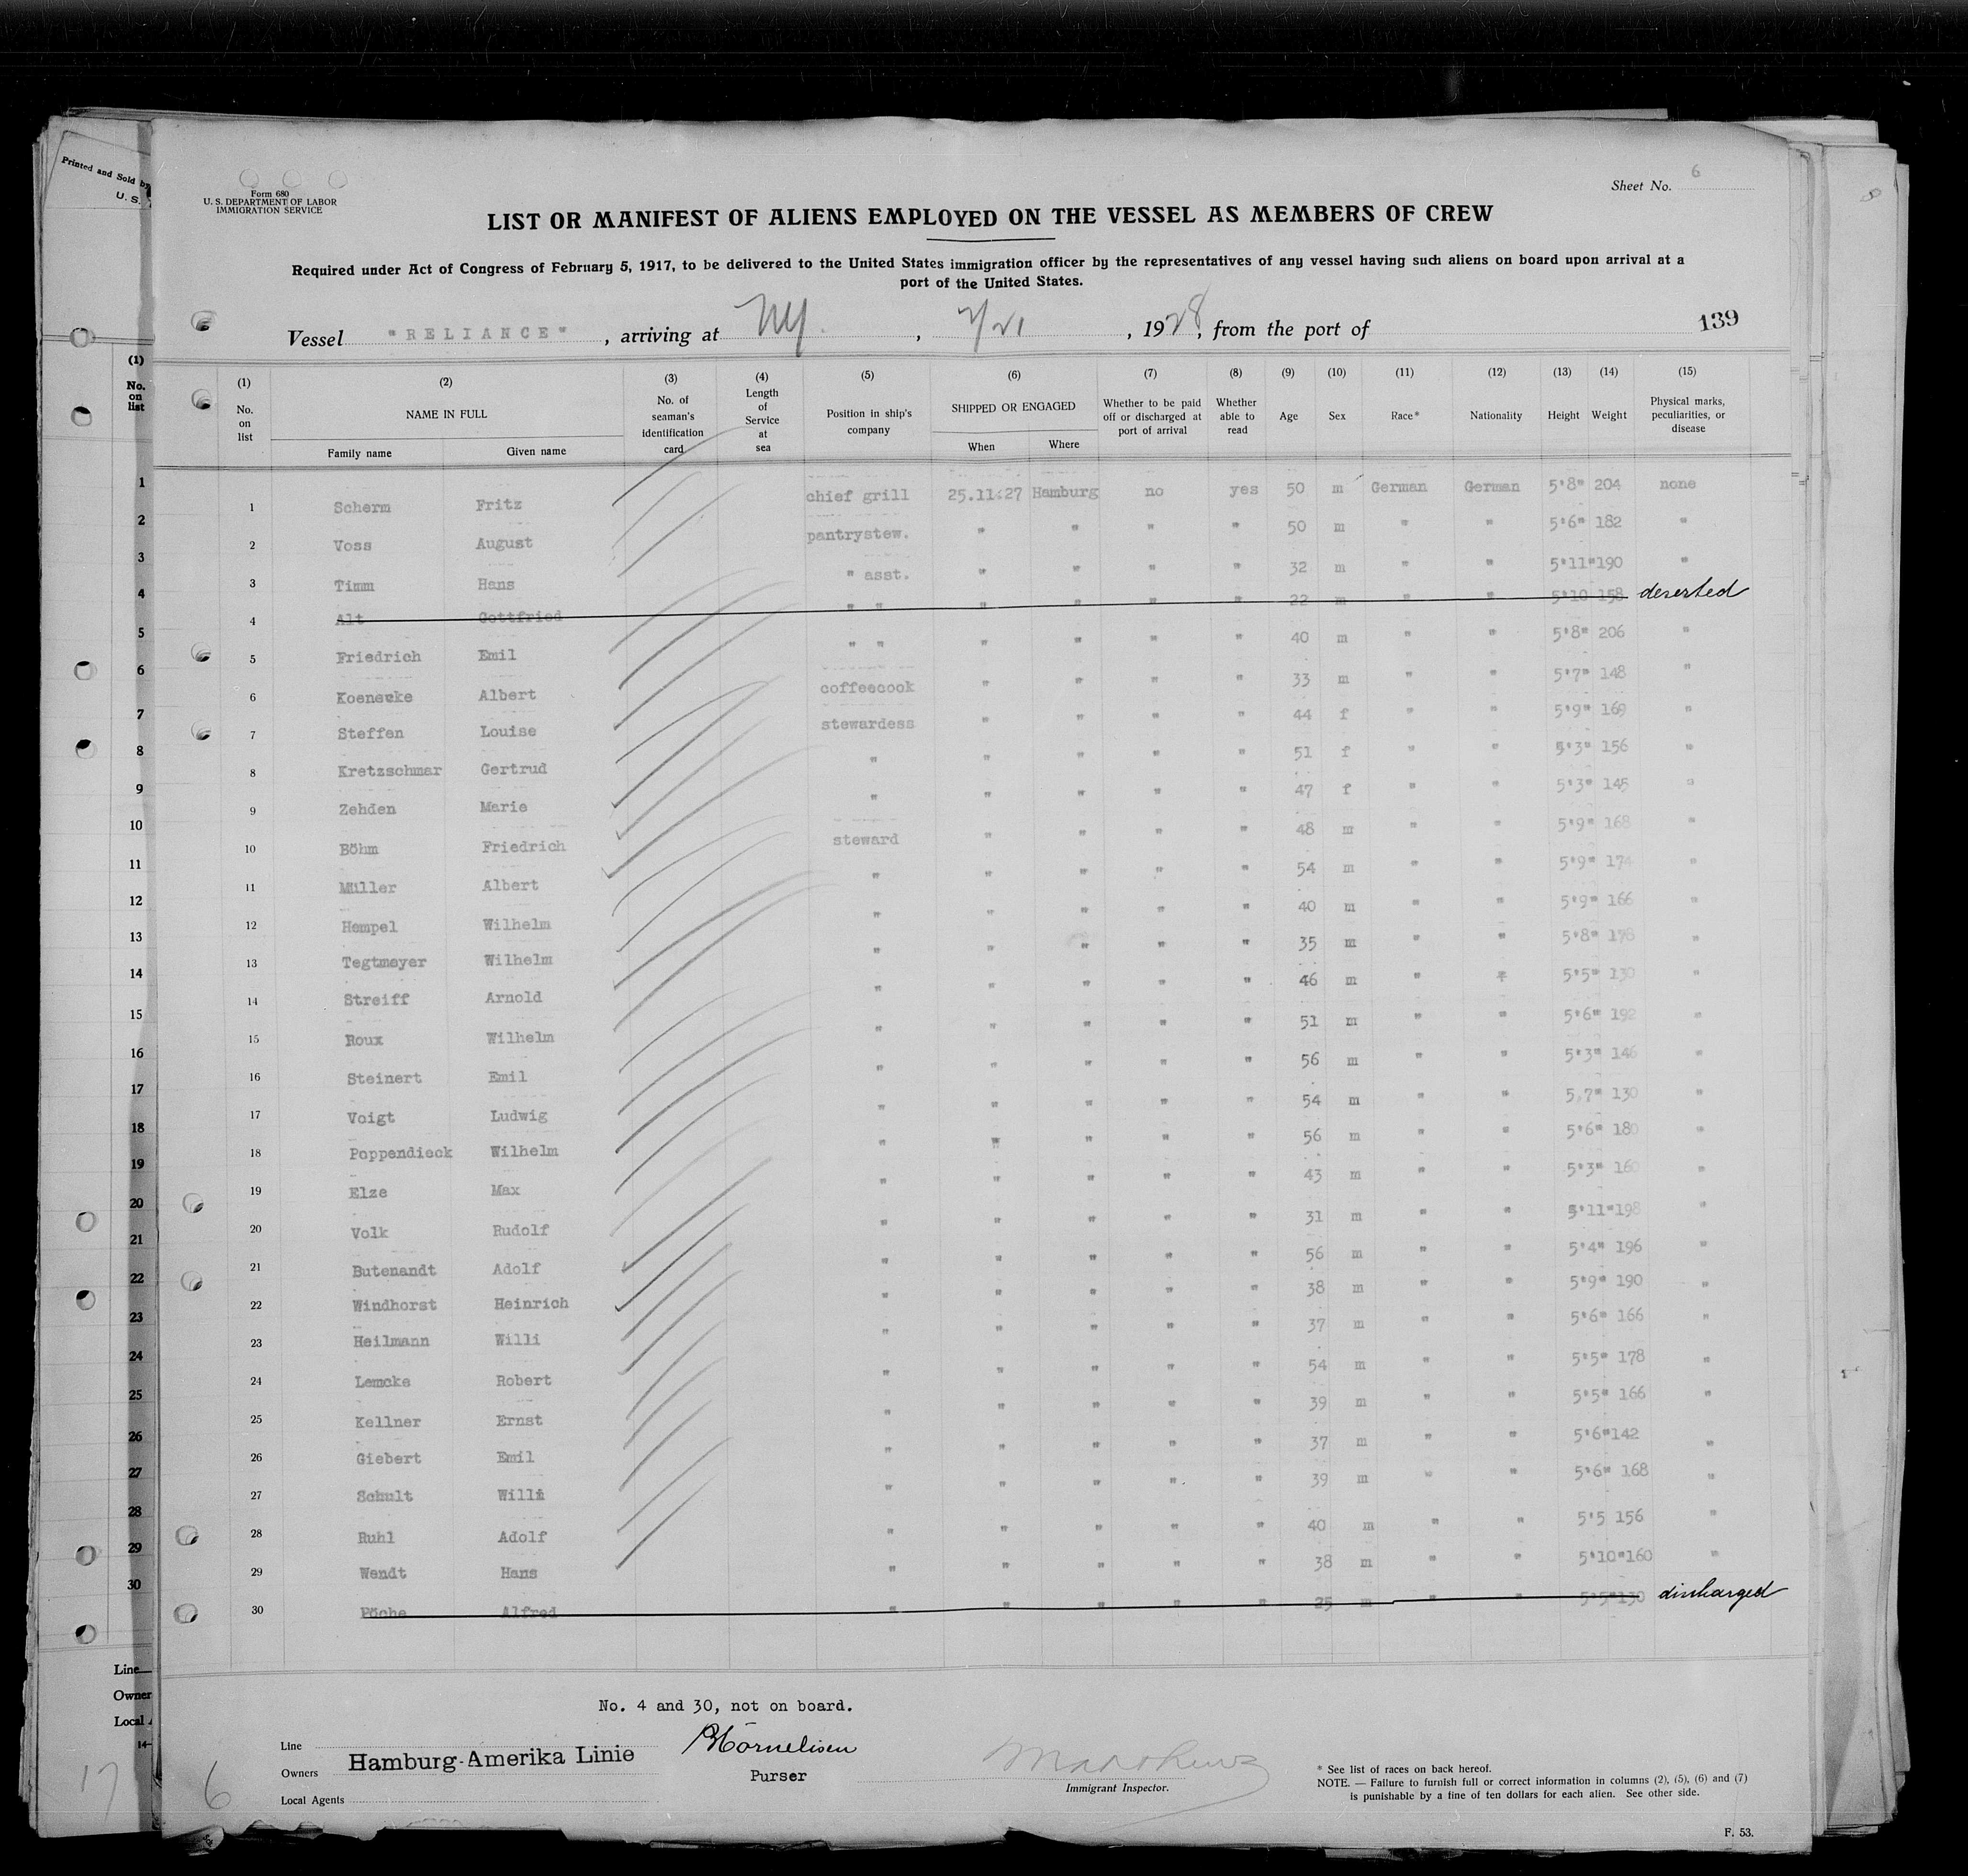 Printed and Sold by
U. S.
6
Sheet No.
Form 680
U. S. DEPARTMENT OF LABOR
IMMIGRATION SERVICE
LIST OR MANIFEST OF ALIENS EMPLOYED ON THE VESSEL AS MEMBERS OF CREW
Required under Act of Congress of February 5, 1917, to be delivered to the United States immigration officer by the representatives of any vessel having such aliens on board upon arrival at a
port of the United States.
Vessel "RELIANCE", arriving at NY., 2/21, 1928, from the port of
139
(1) No. on list
(2) NAME IN FULL Family name Given name
(3) No. of seaman's identification card
(4) Length of Service at sea
(5) Position in ship's company
(6) SHIPPED OR ENGAGED When Where
(7) Whether to be paid off or discharged at port of arrival
(8) Whether able to read
(9) Age
(10) Sex
(11) Race*
(12) Nationality
(13) Height
(14) Weight
(15) Physical marks, peculiarities, or disease
1 Scherm Fritz chief grill 25.11.27 Hamburg no yes 50 m German German 5'8" 204 none
2 Voss August pantrystew. " " " " 50 m " " 5'6" 182 "
3 Timm Hans " asst. " " " " 32 m " " 5'11" 190 "
4 Alt Gottfried " " " " " " 22 m " " 5'10 158 deserted
5 Friedrich Emil " " " " " " 40 m " " 5'8" 206 "
6 Koenecke Albert coffeecook " " " " 33 m " " 5'7" 148 "
7 Steffen Louise stewardess " " " " 44 f " " 5'9" 169 "
8 Kretzschmar Gertrud " " " " " 51 f " " 5'3" 156 "
9 Zehden Marie " " " " " 47 f " " 5'3" 145 "
10 Böhm Friedrich steward " " " " 48 m " " 5'9" 168 "
11 Müller Albert " " " " " 54 m " " 5'9" 174 "
12 Hempel Wilhelm " " " " " 40 m " " 5'9" 166 "
13 Tegtmeyer Wilhelm " " " " " 35 m " " 5'8" 178 "
14 Streiff Arnold " " " " " 46 m " " 5'5" 130 "
15 Roux Wilhelm " " " " " 51 m " " 5'6" 192 "
16 Steinert Emil " " " " " 56 m " " 5'3" 146 "
17 Voigt Ludwig " " " " " 54 m " " 5,7" 130 "
18 Poppendieck Wilhelm " " " " " 56 m " " 5'6" 180 "
19 Elze Max " " " " " 43 m " " 5'3" 160 "
20 Volk Rudolf " " " " " 31 m " " 5'11" 198 "
21 Butenandt Adolf " " " " " 56 m " " 5'4" 196 "
22 Windhorst Heinrich " " " " " 38 m " " 5'9" 190 "
23 Heilmann Willi " " " " " 37 m " " 5'6" 166 "
24 Lemcke Robert " " " " " 54 m " " 5'5" 178 "
25 Kellner Ernst " " " " " 39 m " " 5'5" 166 "
26 Giebert Emil " " " " " 37 m " " 5'6" 142 "
27 Schult Willi " " " " " 39 m " " 5'6" 168 "
28 Ruhl Adolf " " " " " 40 m " " 5'5 156 "
29 Wendt Hans " " " " " 38 m " " 5'10" 160 "
30 Pöche Alfred " " " " " 25 m " " 5'5" 130 discharged
No. 4 and 30, not on board.
Line
Owners Hamburg-Amerika Linie
Local Agents
Purser
Immigrant Inspector.
* See list of races on back hereof.
NOTE. — Failure to furnish full or correct information in columns (2), (5), (6) and (7)
is punishable by a fine of ten dollars for each alien. See other side.
F. 53.
6
17
(1)
No.
on
list
1
2
3
4
5
6
7
8
9
10
11
12
13
14
15
16
17
18
19
20
21
22
23
24
25
26
27
28
29
30
Line
Owner
Local
14-